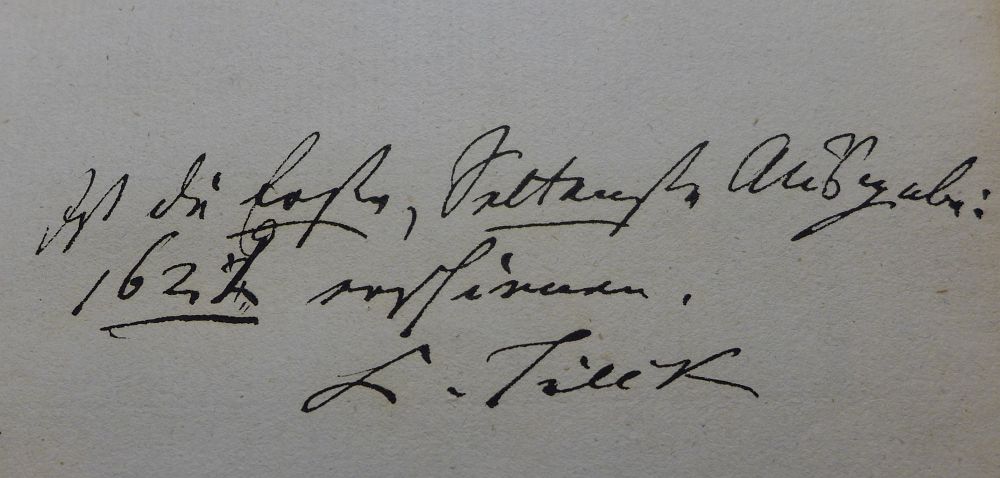 Ist die Erste, Seltenste Ausgabe:
erschienen.
L. Tieck